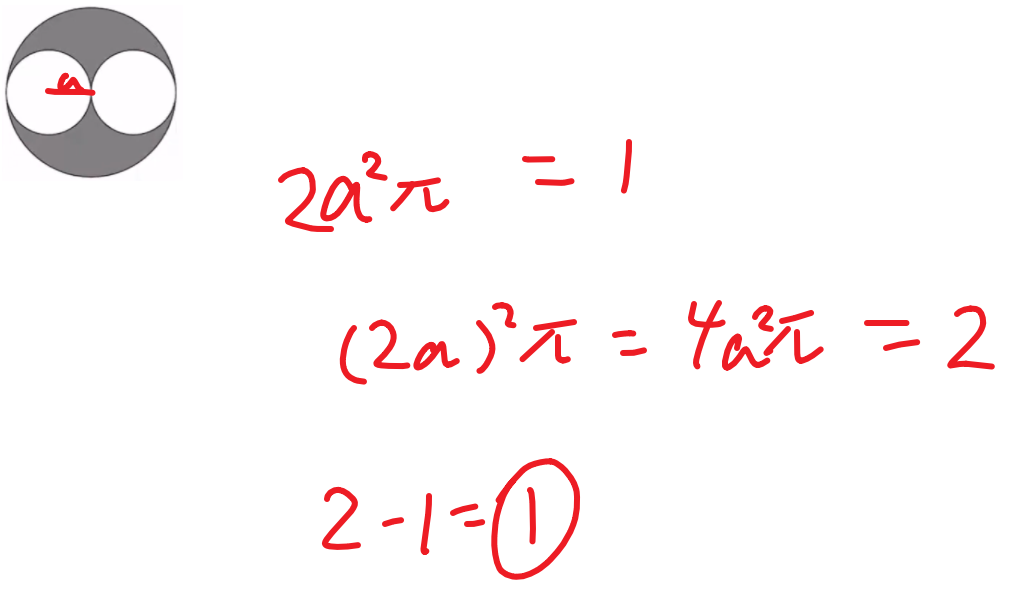 a
2a²π = 1
(2a)²π = 4a²π = 2
2-1=1